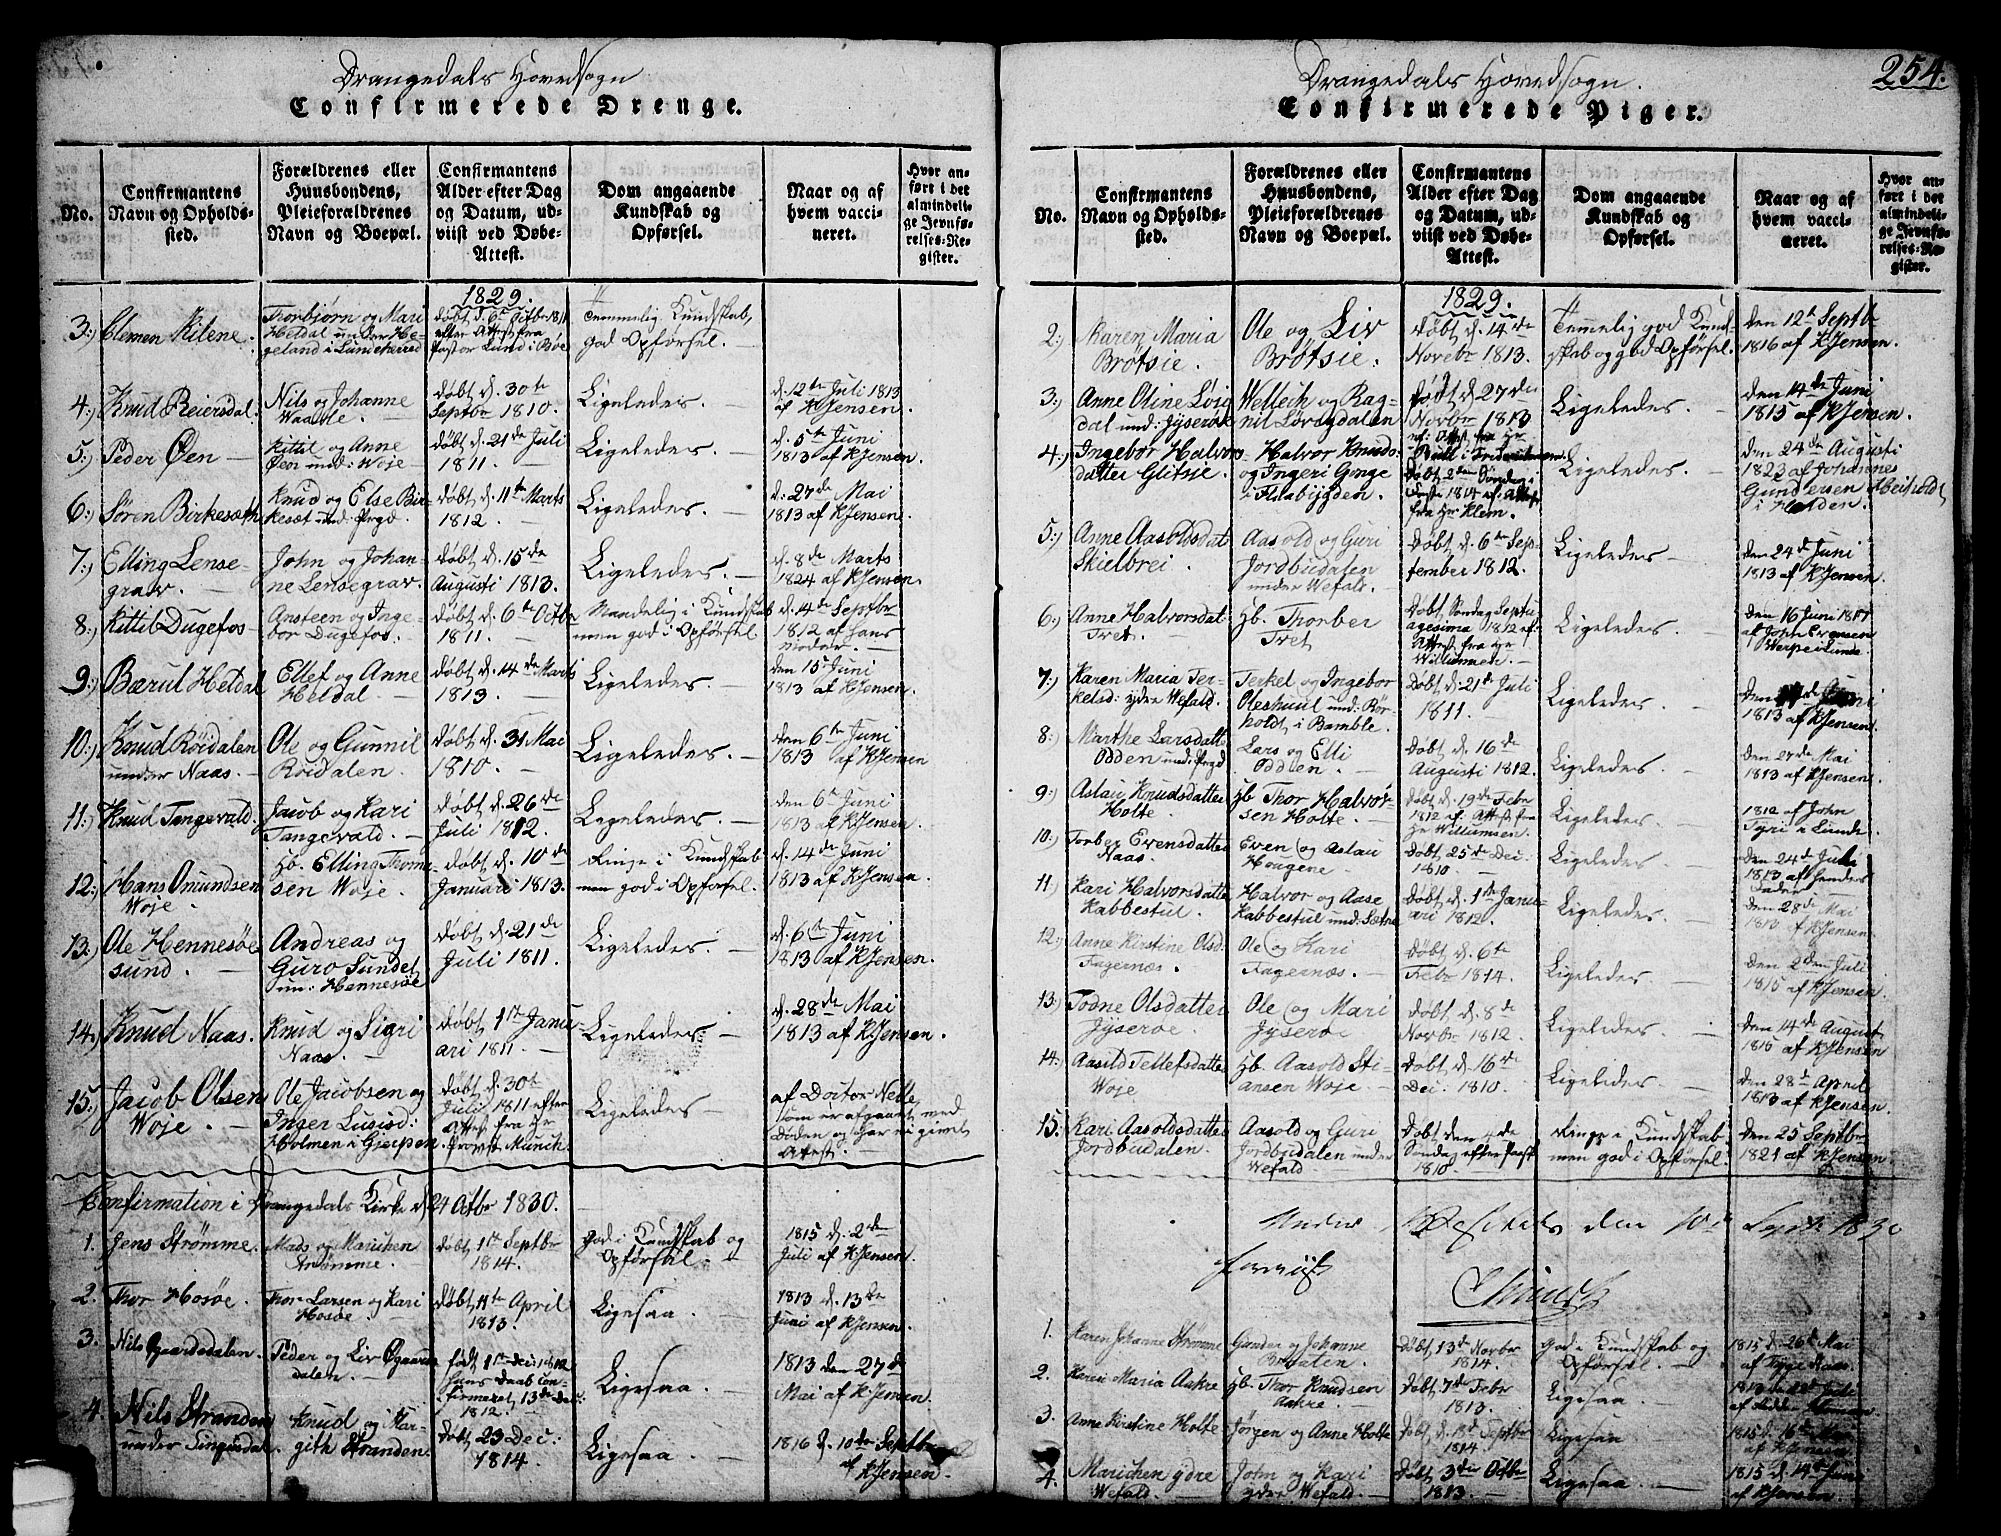 Drangedals Hovedsogn
Confirmerede Drenge.
No.
Confirmantens
Navn og Opholds-
sted.
Forældrenes eller
Huusbondens,
Pleieforældrenes
Navn og Boepæl.
Confirmantens
Alder efter Dag
og Datum, ud-
viist ved Døbe-
Attest.
Dom angaaende
Kundskab og
Opførsel.
Naar og af
hvem vacci-
neret.
Hvor an-
ført i det
almindeli-
ge Jevnfø-
relses-Re-
gister.
1829.
3.) Clemen Kilene.
Thorbjørn og Mari
Heldal under He-
geland i Lundeherred
Døbt d. 6te Octbr 1811
efter Attest fra
Pastor Lund i Bøe
Temmelig Kundskab,
god Opførsel.
4.) Knud Reiersdal.
Nils og Johanne
Døbt d. 30te
Septbr 1810.
Ligeledes.
d. 12te Juli 1813
af KJensen.
5.) Peder Øen
Kittil og Anne
Øen und: Woje
Døbt d. 21de Juli
1811.
Ligeledes.
d. 5te Juni
1813 af KJensen.
6.) Søren Birkesæth
Knud og Else Bir-
kesæt und: Prgd.
Døbt d. 11te Marts
1812.
Ligeledes.
d. 27de Mai
1813 af KJensen.
7.) Elling Lense-
grav.
John og Johan-
ne Lensegrav.
Døbt d. 15de
Augusti 1813.
Ligeledes.
d. 8de Marts
1824 af KJensen
8.) Kittil Dugefos
Ansteen og Inge-
bor Dugefos.
Døbt d. 6te Octbr
1811.
Maadelig i Kundskab
men god i Opførsel.
d. 4de Septbr
1812 af hans
Moder.
9.) Bærul Heldal
Ellef og Anne
Heldal
Døbt d. 14de Marts
1813.
Ligeledes.
den 15 Juni
1813 af KJensen.
10.) Knud Röidalen
under Naas.
Ole og Gunnil
Röidalen.
Døbt d. 31 Mai
1810.
Ligeledes.
den 6te Juni
1813 af KJensen
11.) Knud Tangevald.
Jacob og Kari
Tangevald.
Døbt d. 26de
Juli 1812.
Ligeledes.
den 6te Juni
1813 af KJensen.
12.) Hans Onundsen
Woje.
Hb. Elling Thom-
sen Woje.
Døbt d. 10de
Januari 1813.
Ringe i Kundskab
men god i Opførsel.
d. 14de Juni
1813 af KJensen.
13.) Ole Hennesøe-
sund.
Andreas og
Guro Sundet
un: Hennesøe
Døbt d. 21de
Juli 1811.
Ligeledes.
d. 6te Juni
1813 af KJensen.
14.) Knud Naas.
Knud og Sigri
Naas.
Døbt 1ste Janu-
ari 1811.
Ligeledes.
d. 28de Mai
1813 af KJensen.
15.) Jacob Olsen
Woje.
Ole Jacobsen og
Inger Lusisd:
Holmen i Gjerpen
Døbt d. 30te
Juli 1811 efter
Attest fra Hr
Provst Munch
Ligeledes
af Doctor Nelle
som er afgaaet med
Døden og har ei givet
Attest.
Confirmation i Drangedals Kirke d. 24 Octbr 1830.
1. Jens Strømme.
Mads og Marichen
Strømme.
Døbt 1ste Septbr
1814.
God i Kundskab og
Opførsel.
1815 d. 2de
Juli af KJensen.
2. Thor Hosøe.
Thor Larsen og Kari
Hosøe.
Døbt 11te April
1813.
Ligesaa
1813 d. 13de
Juni af KJensen.
3. Nils Gaardsdalen.
Peder og Liv Øgaards
dalen.
født 1ste Dec: 1812
hans Daab con-
firmeret 13de Dec:
1812.
Ligesaa
1813 den 27de
Mai af KJensen.
4. Nils Stranden
under
Knud og Mar-
gith Stranden.
Døbt 23 Dec:
1814.
Ligesaa.
1816 d. 10de Septbr
af KJensen
254.
Drangedals Hovedsogn.
Confirmerede Piger.
No.
Confirmantens
Navn og Opholds-
sted.
Forældrenes eller
Huusbondens,
Pleieforældrenes
Navn og Boepæl.
Confirmantens
Alder efter Dag
og Datum, ud-
viist ved Døbe-
Attest.
Dom angaaende
Kundskab og
Opførsel.
Naar og af
hvem vacci-
neret.
Hvor an-
ført i det
almindeli-
ge Jevnfø-
relses-Re-
gister.
1829.
2.) Karen Maria
Brøtsie.
Ole og Liv
Brøtsie.
Døbt d. 14de
Novebr 1813.
Temmelig god Kund-
skab og god Opførsel.
den 12te Septb
1816 af KJensen.
3.) Anne Oline Løvig
dal und: Jyserøe
Wellech og Rag-
nil Løvigdalen
født d. 27de
Novbr 1813
Ligeledes.
den 14de Juni
1815 af KJensen.
4.) Ingebor Halvors
datter Glitsie.
Halvor Knuds:
og Ingeri Ginge
i Flaabygden.
Døbt 2den Søndag i
Faste 1814 ef: Attest
fra Hr Klem.
Ligeledes
den 24de Augusti
1823 af Johannes
Gundersen
i Holden.
5.) Anne Aasoldsdat
Skielbrei
Aasold og Guri
Jordbudalen
under Wefald.
Døbt d. 6te Sep-
tember 1812.
Ligeledes
den 24de Juni
1813 af KJensen
6.) Anne Halvorsdat
Tvet.
Hb. Thorber
Tvet
Døbt Søndag Septu-
agesima 1812 ef:
Attest fra Hr
Willumsen.
Ligeledes.
den 16 Juni 1817
af John Evensen
7.) Karen Maria Ter-
kelsd: ydre Wefald.
Terkel og Ingebor
Oleshuul und: Bor-
holdt, i Bamble.
Døbt d. 21de Juli
1811.
Ligeledes.
1813 af KJensen
8.) Marthe Larsdatte
Odden und: Prgd
Lars og Elli
Odden.
Døbt d. 16de
Augusti 1812.
Ligeledes.
den 27de Mai
1813 af KJensen
9.) Aslau Knudsdatter
Holte.
Hb. Thor Halvor-
sen Holte.
Døbt d. 19de Febr
1812 ef. Attest fra
Hr Willumsen.
Ligeledes.
1812 af John
Tyri i Lunde
10.) Torber Evensdatter
Naas.
Even og Aslau
Hougene.
Døbt 25de Dec.
1810.
Ligeledes
den 24de Juli
1813 af hendes
Fader
11.) Kari Halvorsdatter
Kabbestul.
Halvor og Aase
Kabbestul und: Sætre
Døbt d. 1ste Janu-
ari 1812.
Ligeledes.
den 28de Mai
1813 af KJensen.
12.) Anne Kirstine Olsd.
Fagernæs.
Ole og Kari
Fagernæs.
Døbt d. 6te
Febr 1814.
Ligeledes
den 2den Juli
1815 af KJensen
13.) Todne Olsdatter
Jyserøe
Ole og Mari
Jyserøe
Døbt d. 8de
Novbr 1812.
Ligeledes
den 14de August
1815 af KJensen
14.) Aasild Tellefsdatter
Woje
Hb. Aasold Sti-
ansen Woje
Døbt d. 16de
Dec. 1810.
Ligeledes
den 28de April
1813 af KJensen.
15.) Kari Aasoldsdatter
Jordbudalen.
Aasold og Guri
Jordbudalen under
Wefald
Døbt den 4de
Søndag efter Paask
1810.
Ringe i Kundskab
men god i Opførsel
den 25 Septbr
1821 af KJensen
den 10de Septr 1830
1. Karen Johanne Strømme
Gunder og Johanne
Brødalen.
Døbt 13de Novbr
1814.
God i Kundskab og
Opførsel.
1815 d. 26de Mai
af Tygge Naas.
2. Karen Maria Aakre
Hb. Thor Knudsen
Aakre.
Døbt 7de Febr
1813.
Ligesaa
3. Anne Kirstine Holte
Jørgen og Anne Holte
Døbt d. 18de Septbr
1814
Ligesaa
1815 d. 16de Mai
af KJensen
4. Marichen ydre
Wefald.
John og Kari
ydre Wefald.
Døbt 3de Octbr
1813.
Ligesaa
1815 d. 14de Juni
af KJensen.